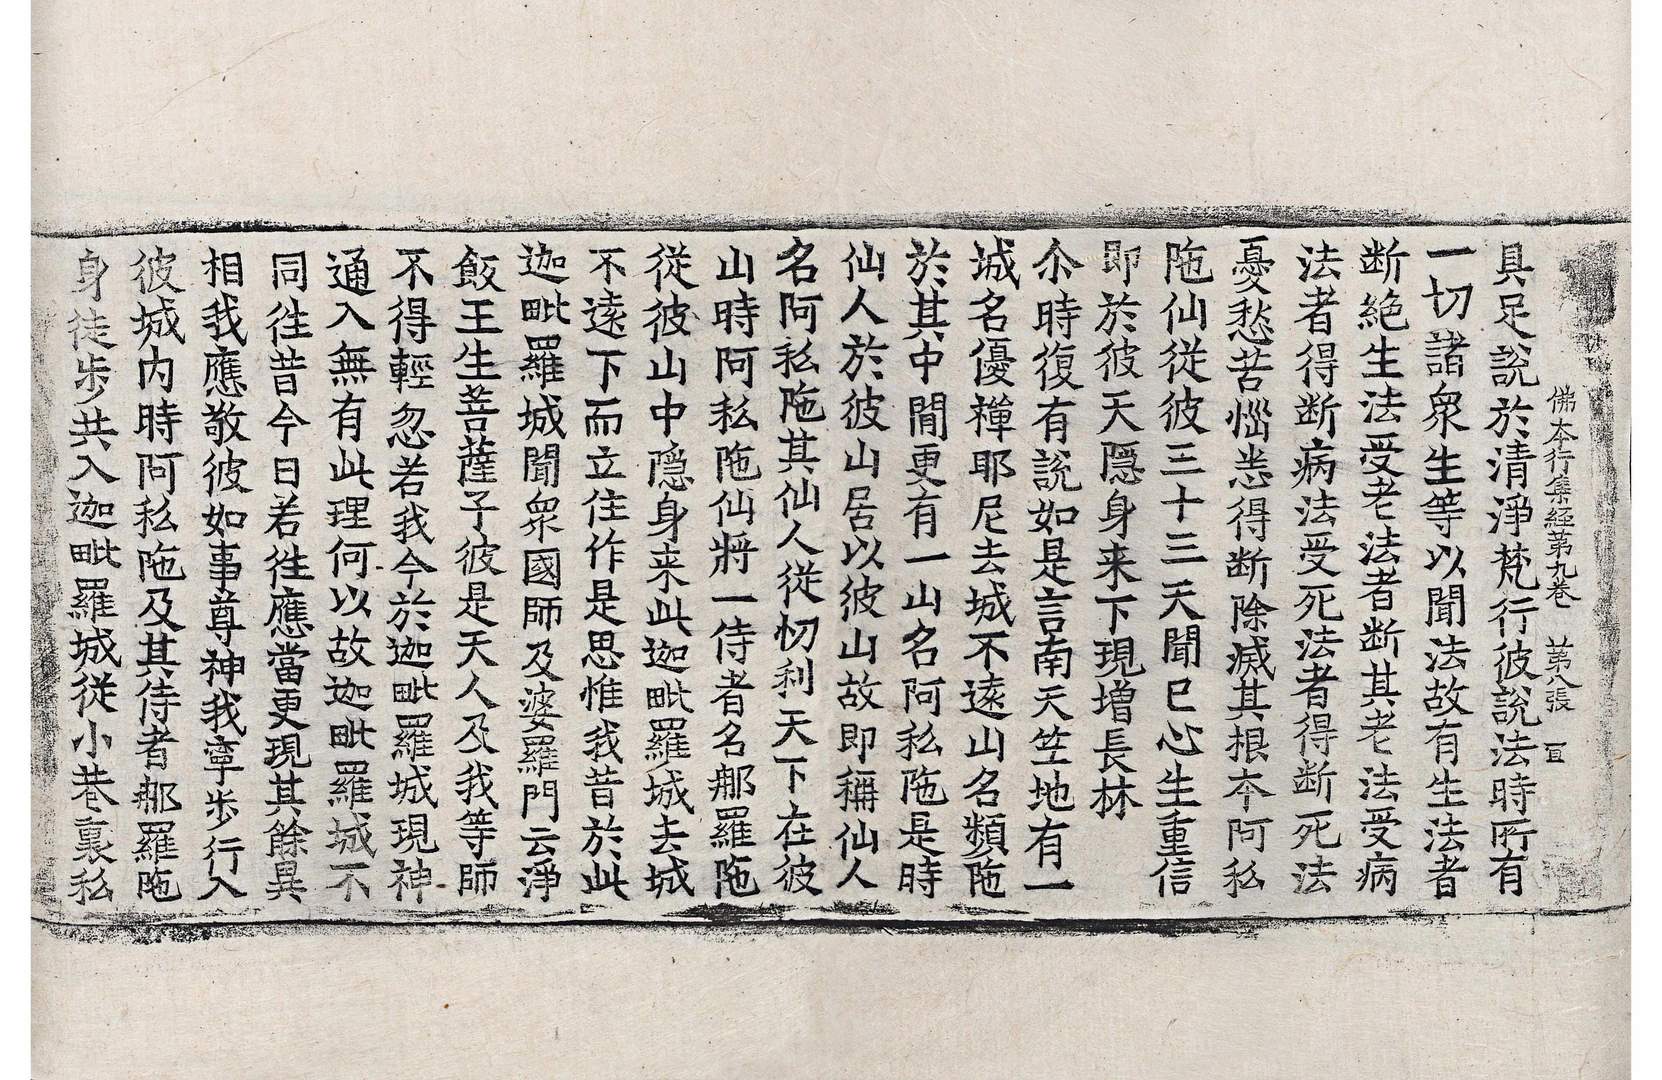 佛本行集経苐九巻　苐八張　㝉
具足說於清淨梵行彼說法時所有
一切諸衆生等以聞法故有生法者
断絶生法受老法者断其老法受病
法者得断病法受死法者得断死法
憂愁苦惱恙得断除滅其根夲阿私
陁仙従彼三十三天聞已心生重信
即於彼天隱身来下現增長林
尒時復有說如是言南天竺地有一
城名優禪耶尼去城不遠山名頻陁
於其中閒更有一山名阿私陁是時
仙人於彼山居以彼山故即稱仙人
名阿私陁其仙人従忉利天下在彼
山時阿私陁仙將一侍者名那羅陁
従彼山中隱身来此迦毗羅城去城
不遠下而立住作是思惟我昔於此
迦毗羅城聞衆國師及婆羅門云淨
飯王生菩薩子彼是天人及我等師
不得輕忽若我今於迦毗羅城現神
通入無有此理何以故迦毗羅城不
同徃昔今日若徃應當更現其餘異
相我應敬彼如事尊神我寜步行入
彼城内時阿私陁及其侍者那羅陁
身徒步共入迦毗羅城従小巷裏私